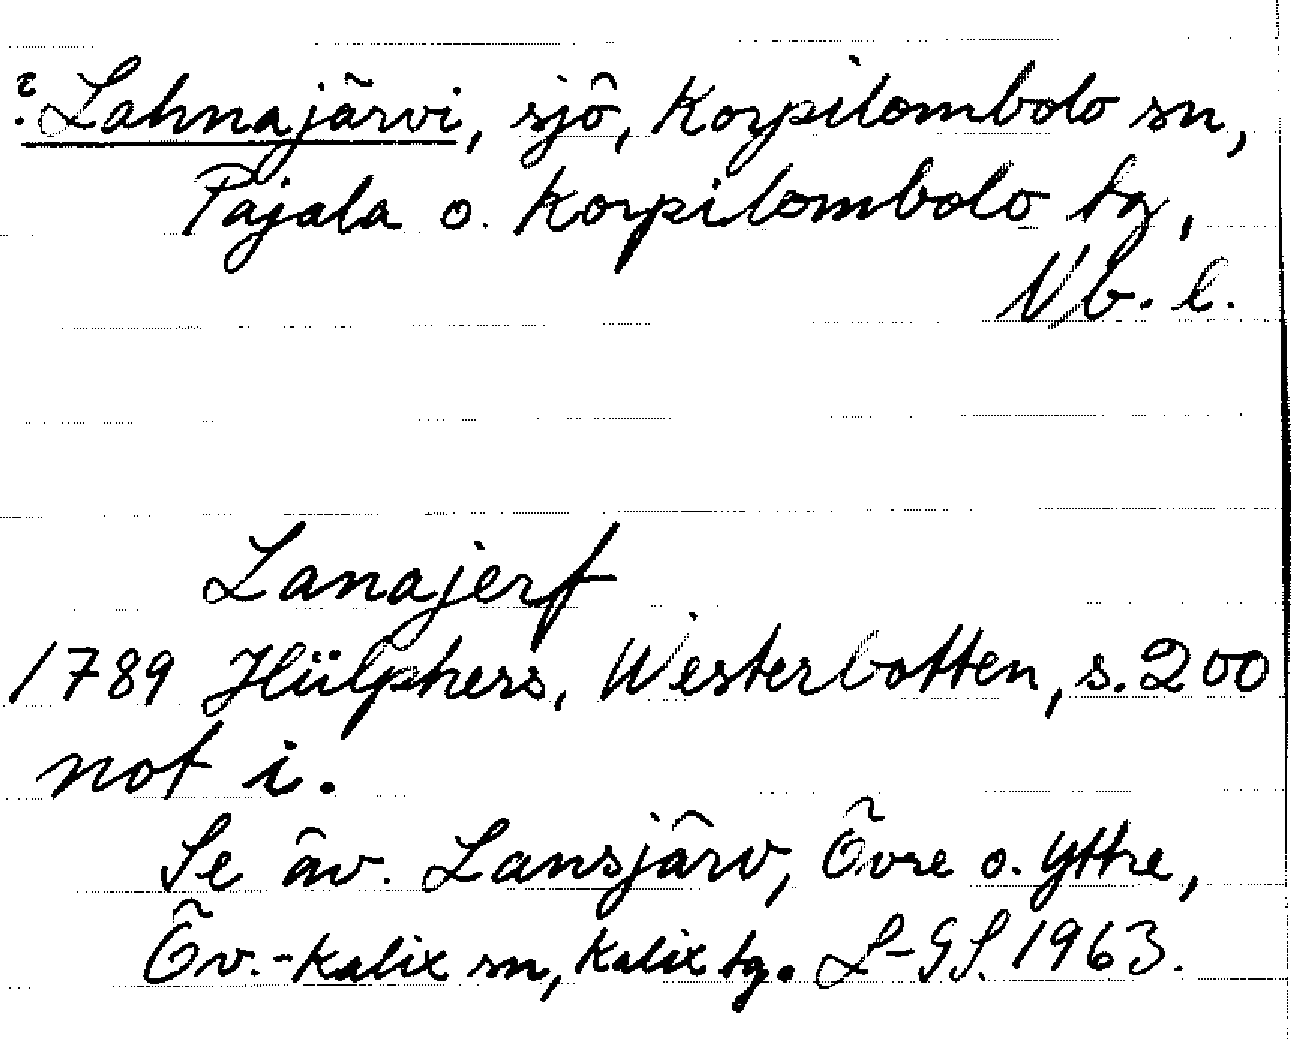 ? Lahnajärvi, sjö, Korpilombolo sn,
Pajala o. Korpilombolo tg,
Nb. l.
Lanajerf
1789 Hülphers, Westerbotten, s. 200
not i.
Se äv. Lansjärv, Övre o. Yttre,
Öv.-Kalix sn, Kalix tg. L-GS. 1963.